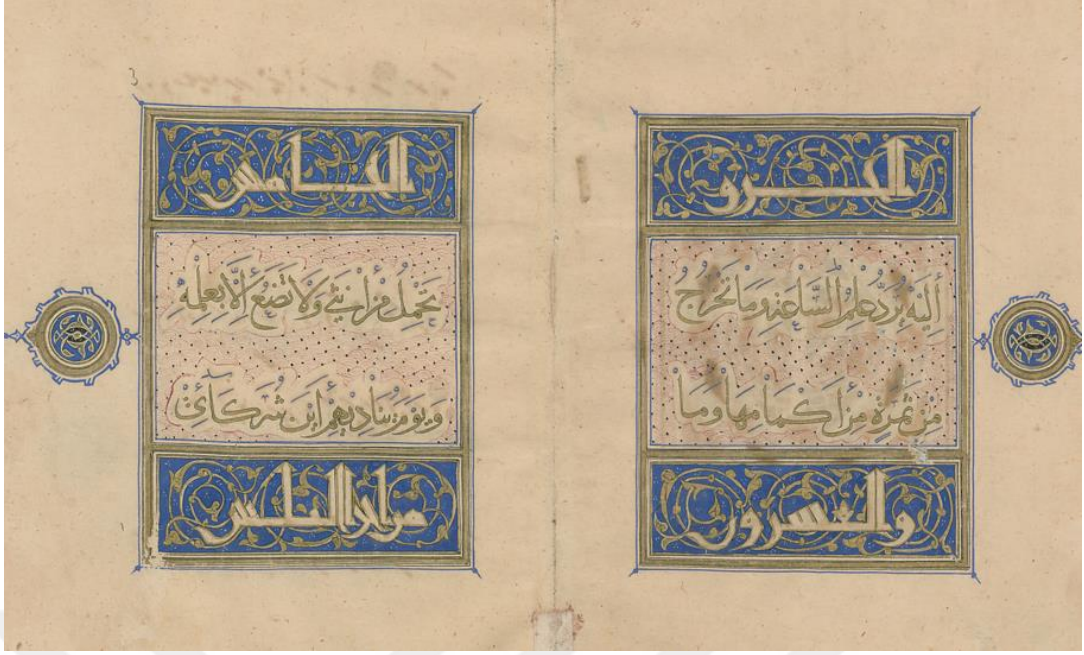 الجزو
إليه يرد علم الساعة وما تخرج
من ثمرة من أكمامها وما
والعشرون
الخامس
تحمل من أنثى ولا تضع إلا بعلمه
ويوم يناديهم أين شركائي